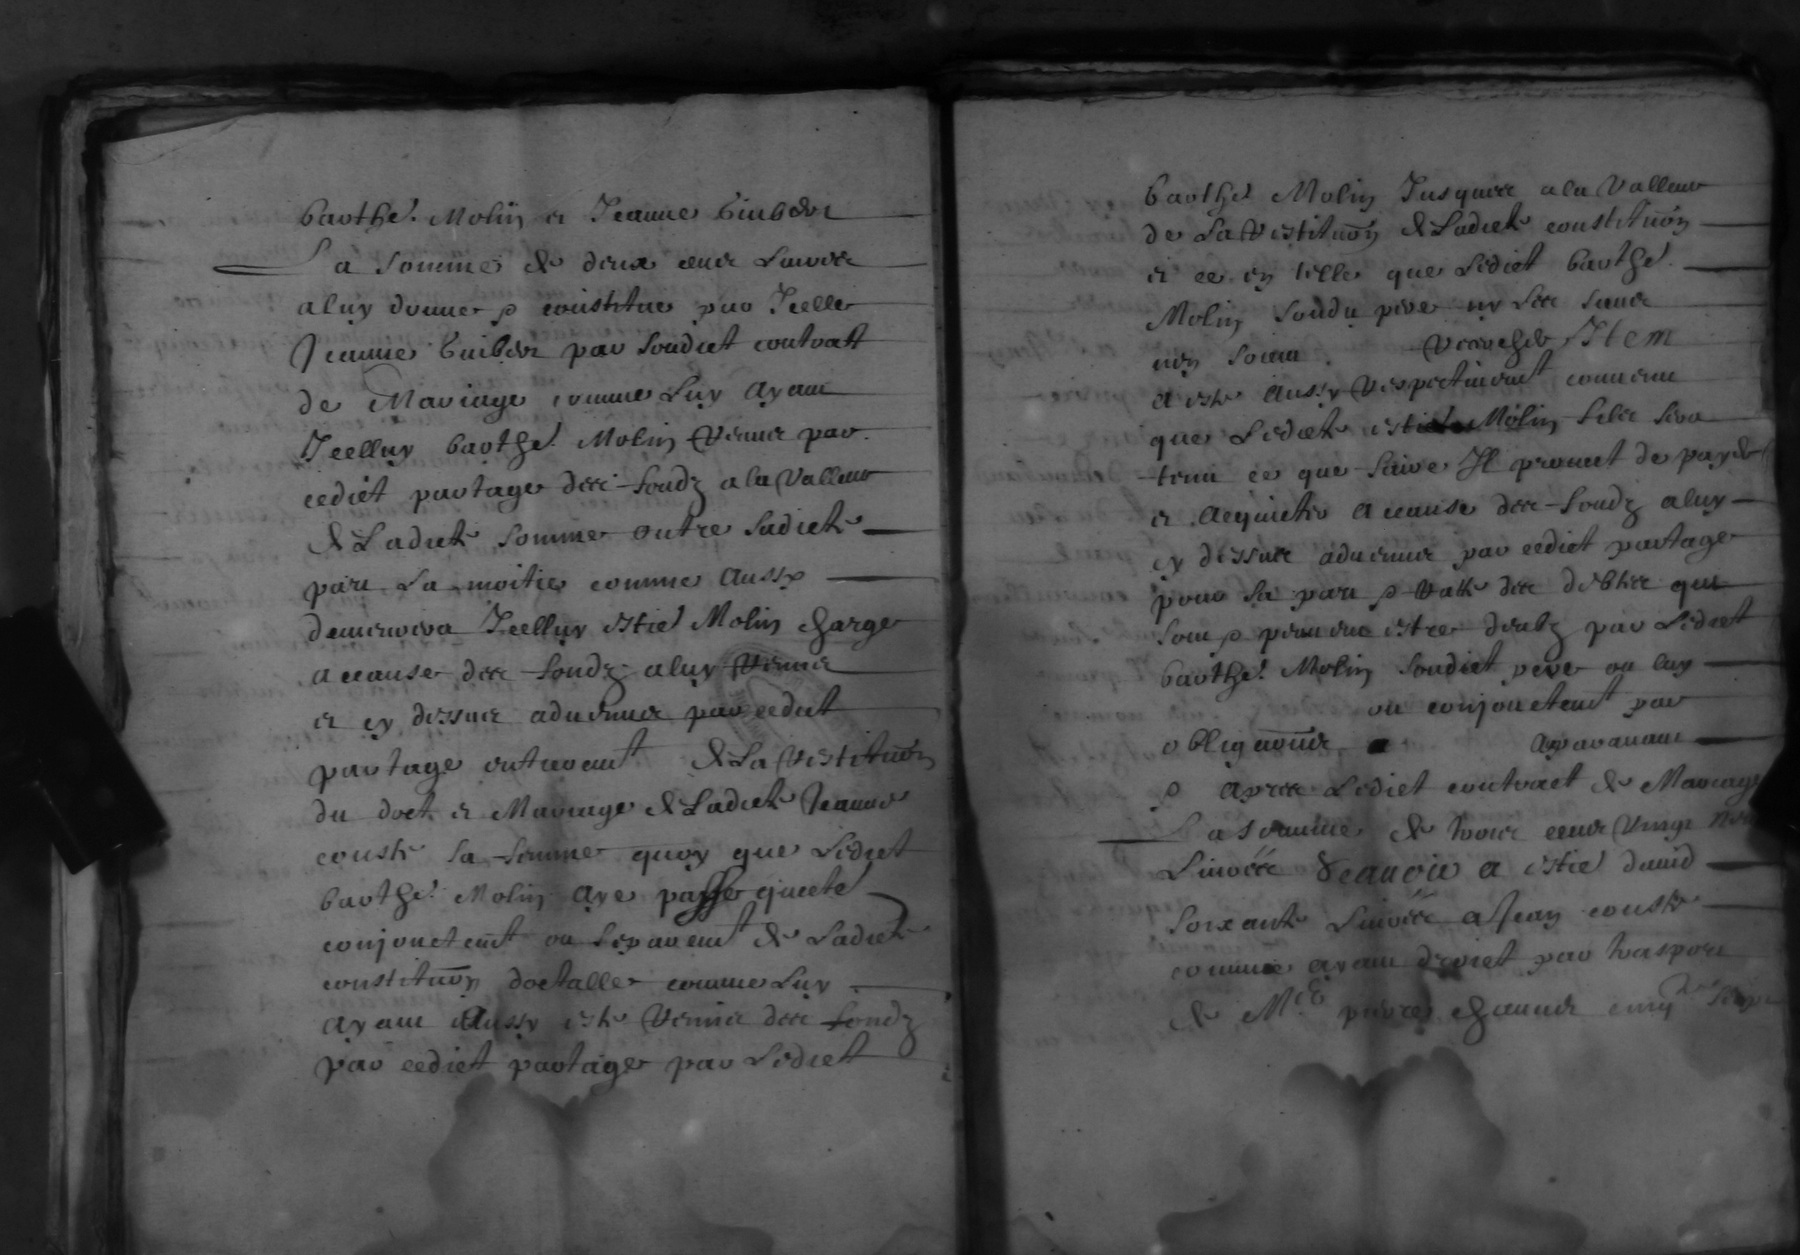 barthe! Molin et Jeanne Guiber
La somme de deux cens Livres
a luy donne & constitue par Icelle
Jeanne Guiber par sondict contratt
de Mariage comme Luy ayant
Icelluy barthe! Molin par
cedict partage des fondz a la valleur
de Ladicte somme outre sadicte
part La moitie comme aussy
demeurera Icelluy estie! Molin charge
a cause des fondz a luy
et cy dessus advenus par cedict
partage de La restituon
du doct et Mariage de Ladicte Jeanne
couste sa femme quoy que Ledict
barthe! Molin aye passe quicte
conjonctemt ou separemt de Ladicte
constituon doctalle comme Luy
ayant aussy este des fondz
par cedict partage par Ledict
barthe! Molin Jusques a la valleur
de La restituon de Ladicte constituon
et ce en telle que Ledict barthe!
Molin sondu pere ny ses
soient Item
a este aussy respectivemt convenu
que Ledict estie Molin filz sera
tenu ce que faire Il promet de payer
et acquicter a cause des fondz a luy
cy dessus advenus par cedict partage
pour sa part & des debtes que
sont & peuvent estre deubz par Ledict
barthe! Molin sondict pere ou luy
ou conjonctemt par
obligaons auparavant
& apres Ledict contract de Mariage
La somme de trois cens vingt
Livres scavoir a estie! david
soixante Livres a Jean couste
comme ayant droict par trasport
de Me pierre